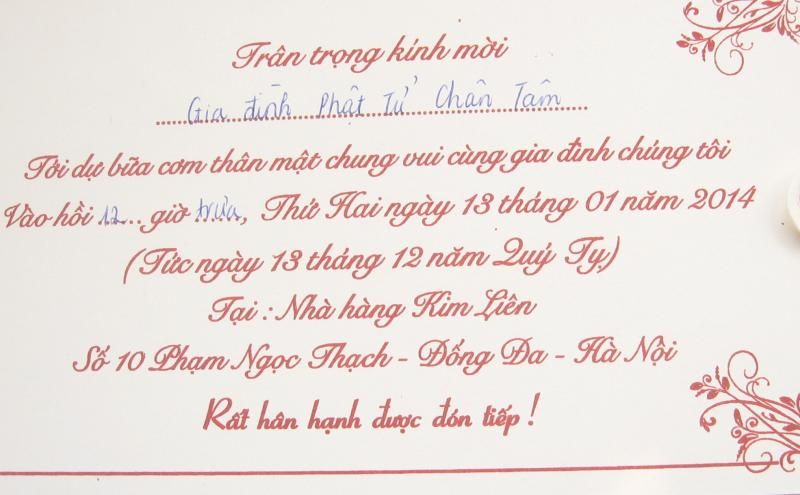 Trân trọng kính mời
Gia đình Phật Tử Chân Tâm
Tới dự bữa cơm thân mật chung vui cùng gia đình chúng tôi
Vào hồi 12 giờ trưa, Thứ Hai ngày 13 tháng 01 năm 2014
(Tức ngày 13 tháng 12 năm Quý Tỵ)
Tại : Nhà hàng Kim Liên
Số 10 Phạm Ngọc Thạch - Đống Đa - Hà Nội
Rất hân hạnh được đón tiếp !